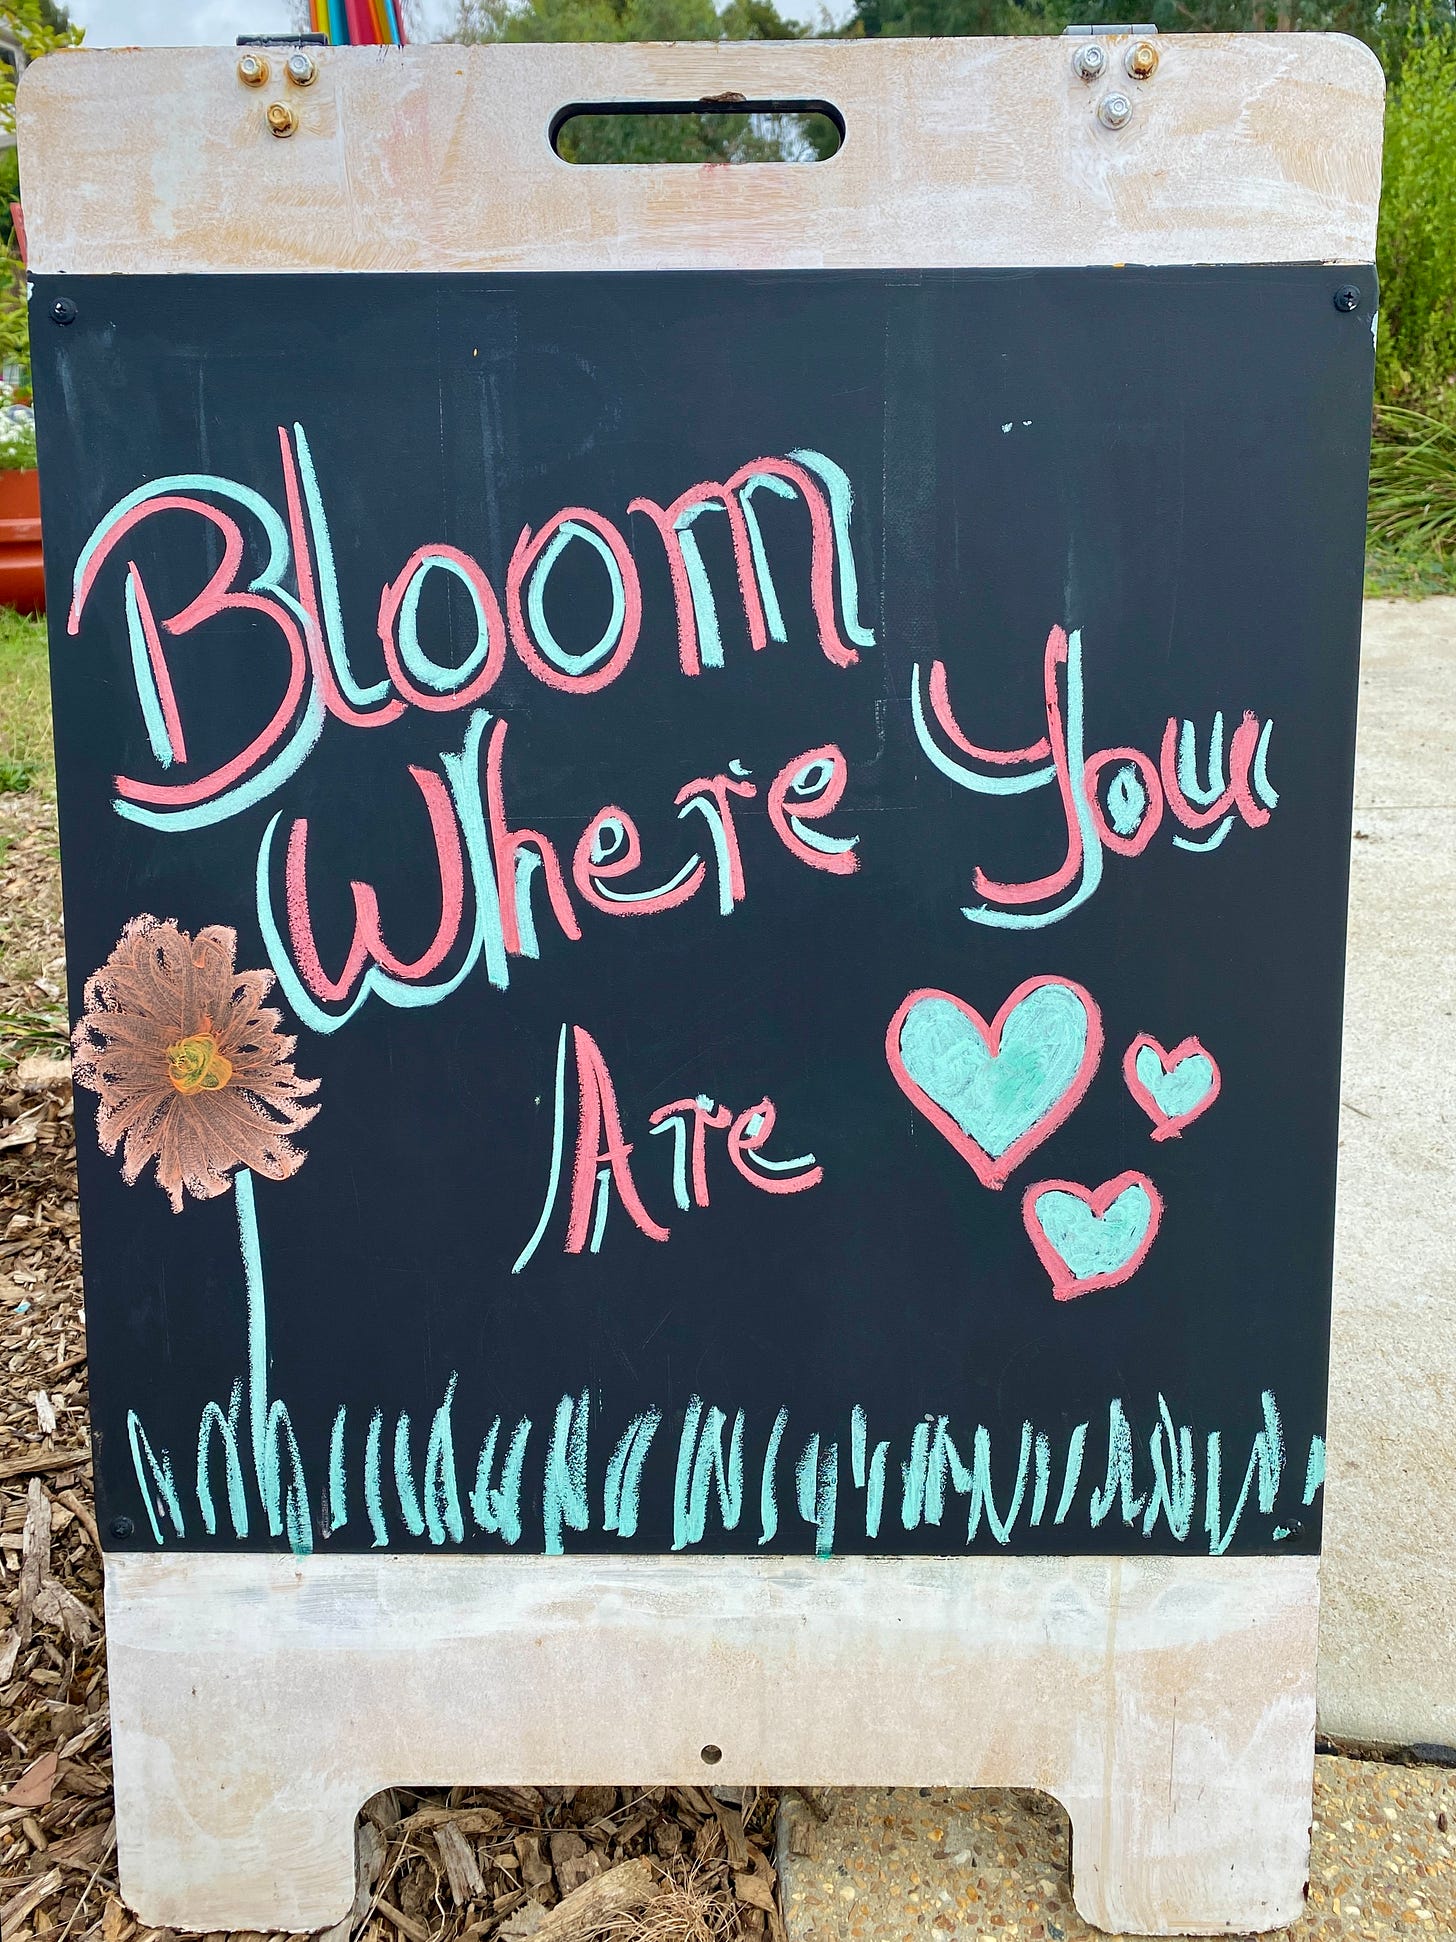 Bloom
Where You
Are